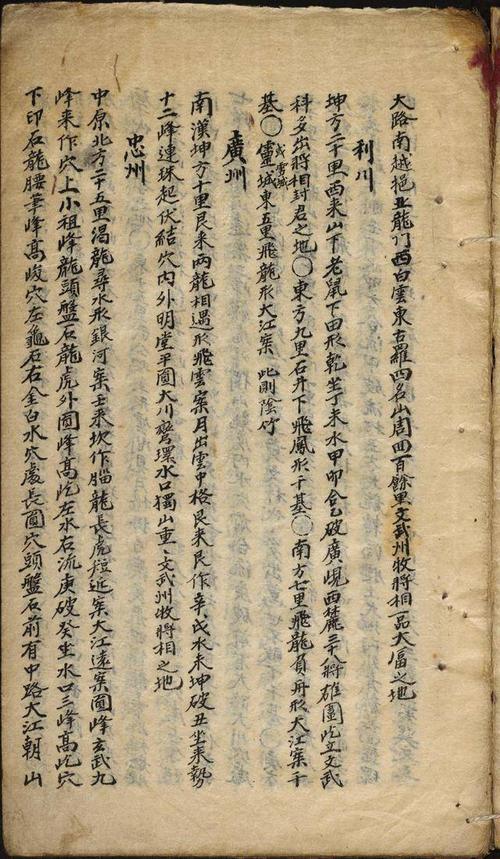 大路南越挹丑龍門西白雲東古羅四名山周回百餘里文武州牧將相一品大富之地
利川
坤方二十里西来山下老鼠下田形乾坐丁未水甲卯合乙破廣峴西麓三十八將雄圍屹立文武
科多出將相封君之地〇東方九里石井下飛鳳形千基〇南方七里飛龍負舟形大江案千
基〇靈城東五里飛龍形大江案 此則陰竹
廣州
南漢坤方十里艮来兩龍相遇形飛雲案月出雲中格艮来艮作辛戌水未坤破丑坐来勢
十二峰連珠起伏結穴内外明堂平圓大川彎環水口獨山重〻文武州牧將相之地
忠州
中原北方二十五里渴龍尋水形銀河案壬来坎作腦龍長虎短近案大江遠案圓峰玄武九
峰来作穴上小祖峰龍頭盤石龍虎外圓峰高屹左水右流庚破癸坐水口三峰高屹穴
下印石龍腰筆峰高峻穴左龜石右金白水穴處長圓穴頭盤石前有中路大江朝山